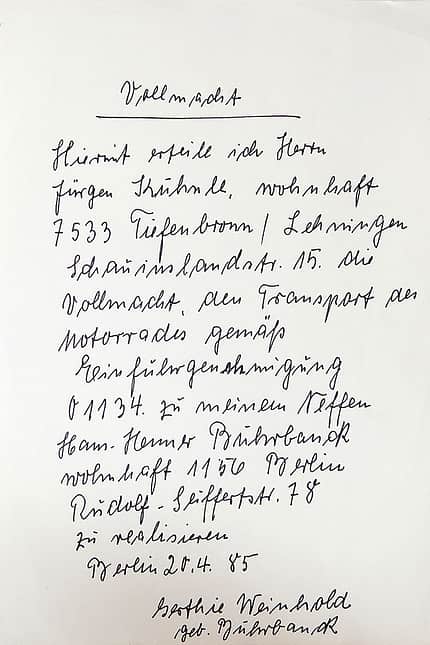 Vollmacht
Hiermit erteile ich Herrn
Jürgen Kühnle, wohnhaft
7533 Tiefenbronn / Lehningen
Schauinslandstr. 15. die
Vollmacht, den Transport des
Motorrades gemäß
Einfuhrgenehmigung
01134. zu meinem Neffen
Hans-Henner Buhrbanck
wohnhaft 1156 Berlin
Rudolf-Seiffertstr. 78
zu realisieren
Berlin 20.4. 85
Weinhold
geb. Buhrbanck